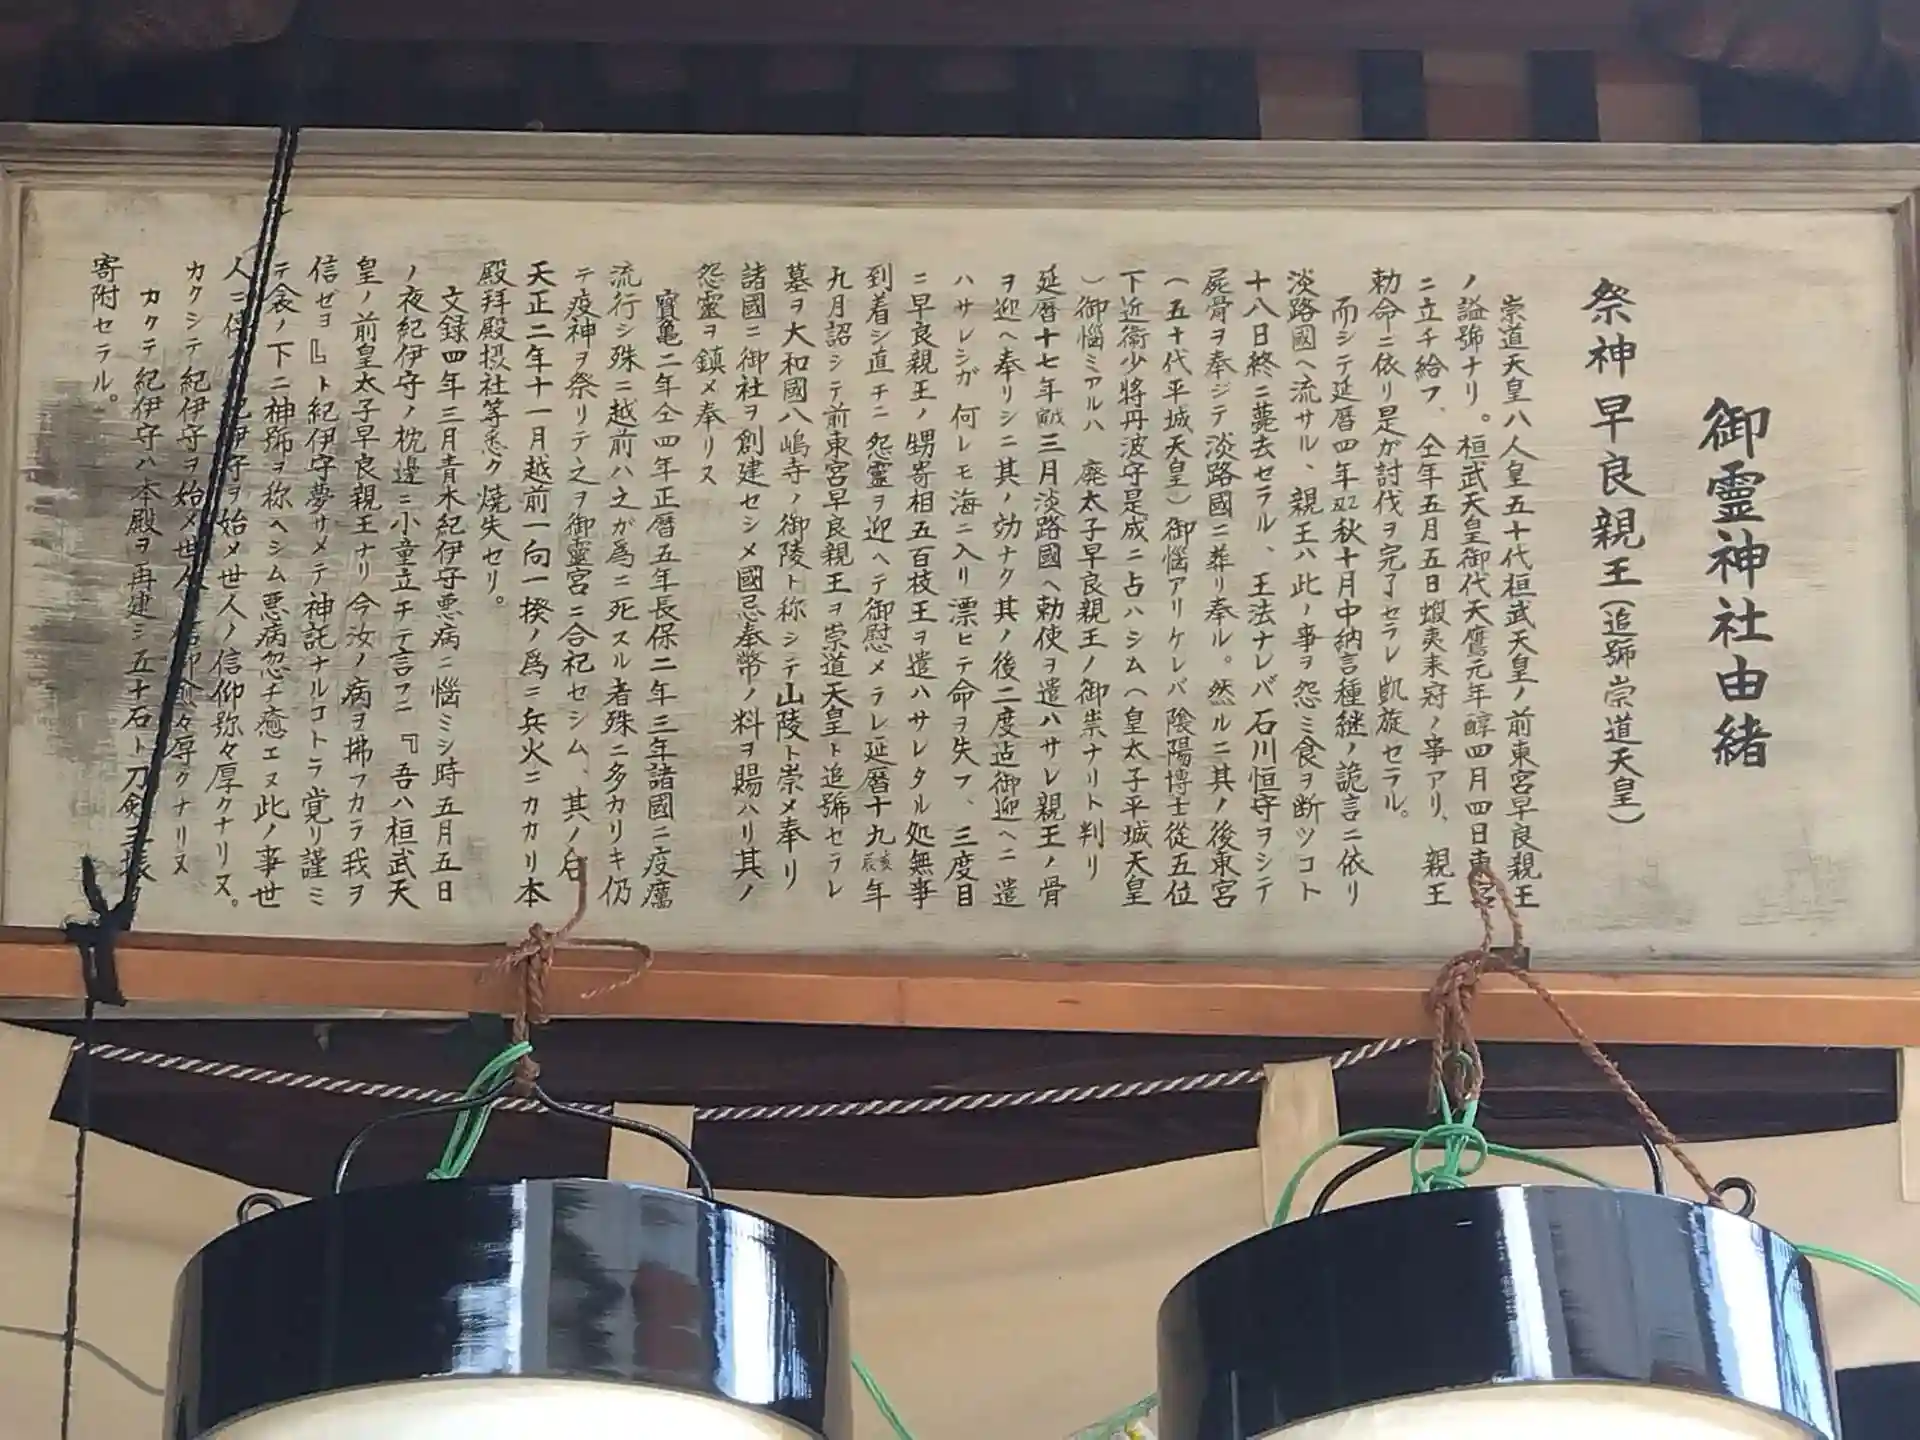 御靈神社由緒
祭神早良親王(追號崇道天皇)
崇道天皇ハ人皇五十代桓武天皇ノ前東宮早良親王
ノ諡號ナリ。桓武天皇御代天應元年四月四日東宮
ニ立チ給フ、仝年五月五日蝦夷来寇ノ事アリ、親王
勅命ニ依リ是が討伐ヲ完了セラレ凱旋セラル。
而シテ延暦四年秋十月中納言種継ノ詭言ニ依リ
淡路國ヘ流サル、親王ハ此ノ事ヲ怨ミ食ヲ断ツコト
十八日終ニ薨去セラル、王法ナレバ石川恒守ヲシテ
屍骨ヲ奉ジテ淡路國ニ葬リ奉ル。然ルニ其ノ後東宮
(五十代平城天皇)御惱アリケレバ陰陽博士従五位
下近衛少将丹波守是成ニ占ハシム(皇太子平城天皇
)御惱ミアルハ 廃太子早良親王ノ御祟ナリト判リ
延暦十七年三月淡路國ヘ勅使ヲ遣ハサレ親王ノ骨
ヲ迎ヘ奉リシニ其ノ効ナク其ノ後二度迠御迎ヘニ遣
ハサレシガ何レモ海ニ入リ漂ヒテ命ヲ失フ、三度目
ニ早良親王ノ甥寄相五百枝王ヲ遣ハサレタル処無事
到着シ直チニ怨靈ヲ迎ヘテ御慰メラレ延暦十九年
九月詔シテ前東宮早良親王ヲ崇道天皇ト追號セラレ
墓ヲ大和國八嶋寺ノ御陵ト称シテ山陵ト崇メ奉リ
諸國ニ御社ヲ創建セシメ國忌奉幣ノ料ヲ賜ハリ其ノ
怨靈ヲ鎮メ奉リス
寳亀二年仝四年正暦五年長保二年三年諸國ニ疫癘
流行シ殊ニ越前ハ之が為ニ死スル者殊ニ多カリキ仍
テ疫神ヲ祭リテ之ヲ御靈宮ニ合祀セシム、其ノ后
天正二年十一月越前一向一揆ノ為ニ兵火ニカカリ本
殿拝殿摂社等悉ク焼失セリ。
文録四年三月青木紀伊守悪病ニ惱ミシ時五月五日
ノ夜紀伊守ノ枕邊ニ小童立チテ言フニ『吾ハ桓武天
皇ノ前皇太子早良親王ナリ今汝ノ病ヲ拂フカラ我ヲ
信ゼヨ』ト紀伊守夢サメテ神託ナルコトヲ覚リ謹ミ
テ衾ノ下ニ神號ヲ称ヘシム悪病忽チ癒エヌ此ノ事世
人ニ紀伊守ヲ始メ世人ノ信仰弥々厚クナリヌ。
カクシテ紀伊守ヲ始メ世人信仰愈々厚クナリヌ
カクテ紀伊守ハ本殿ヲ再建シ五十石ト刀劍三振
寄附セラル。